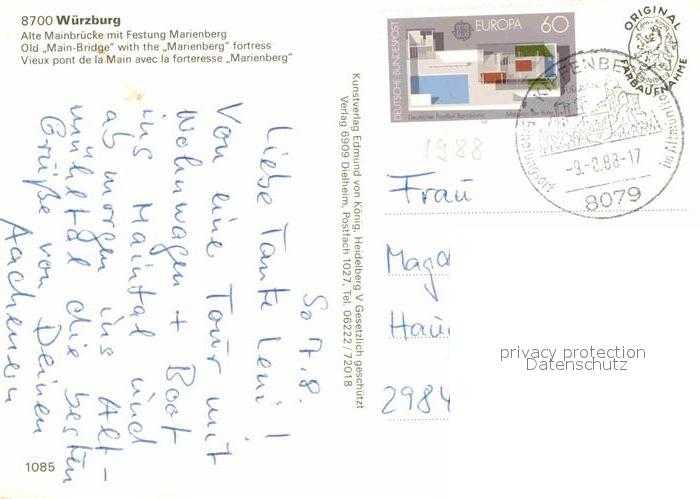 8700 Würzburg
Alte Mainbrücke mit Festung Marienberg
Old „Main-Bridge" with the „Marienberg" fortress
Vieux pont de la Main avec la forteresse „Marienberg"
So 7.8.
Liebe Tante Leni!
Von eine Tour mit
Wohnwagen + Boot
ins Maintal und
ab morgen ins Alt-
mühltal die besten
Grüße von Deinen
Aachenern
1085
Kunstverlag Edmund von König, Heidelberg V Gesetzlich geschützt
Verlag 6909 Dielheim, Postfach 1027, Tel. 06222/72018
DEUTSCHE BUNDESPOST
EUROPA 60
Deutscher Pavillon Barcelona
ORIGINAL
FARBAUFNAHME
-9.-2.88-17
8079
1988
Frau
Magd
Hau
2984
privacy protection
Datenschutz